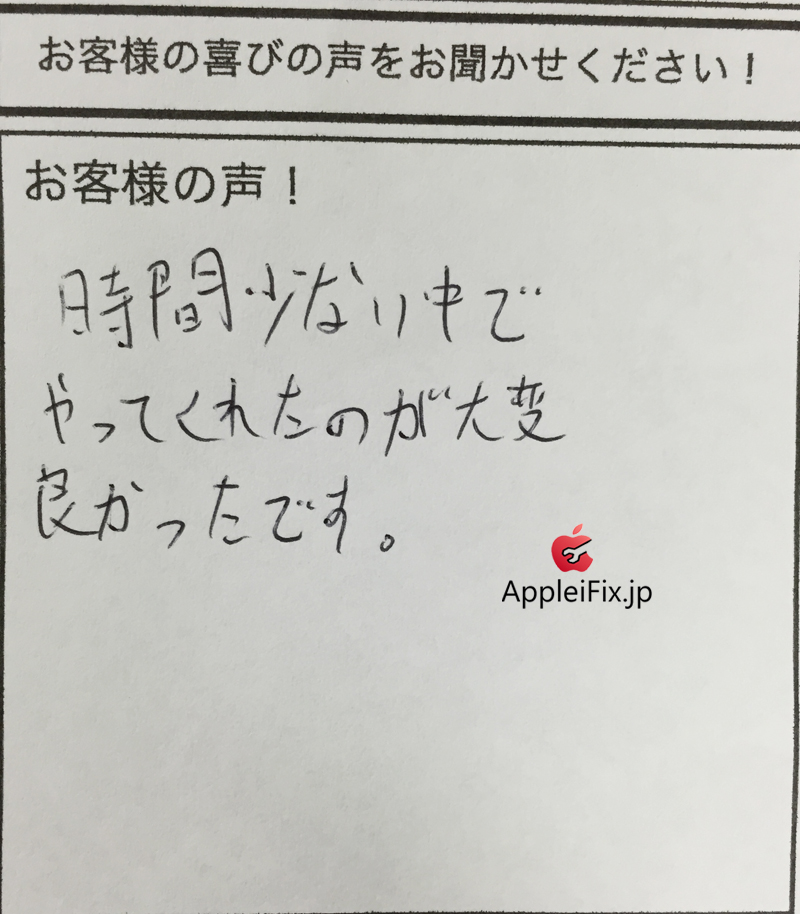 お客様の喜びの声をお聞かせください！
お客様の声！
時間少ない中で
やってくれたのが大変
良かったです。
AppleiFix.jp